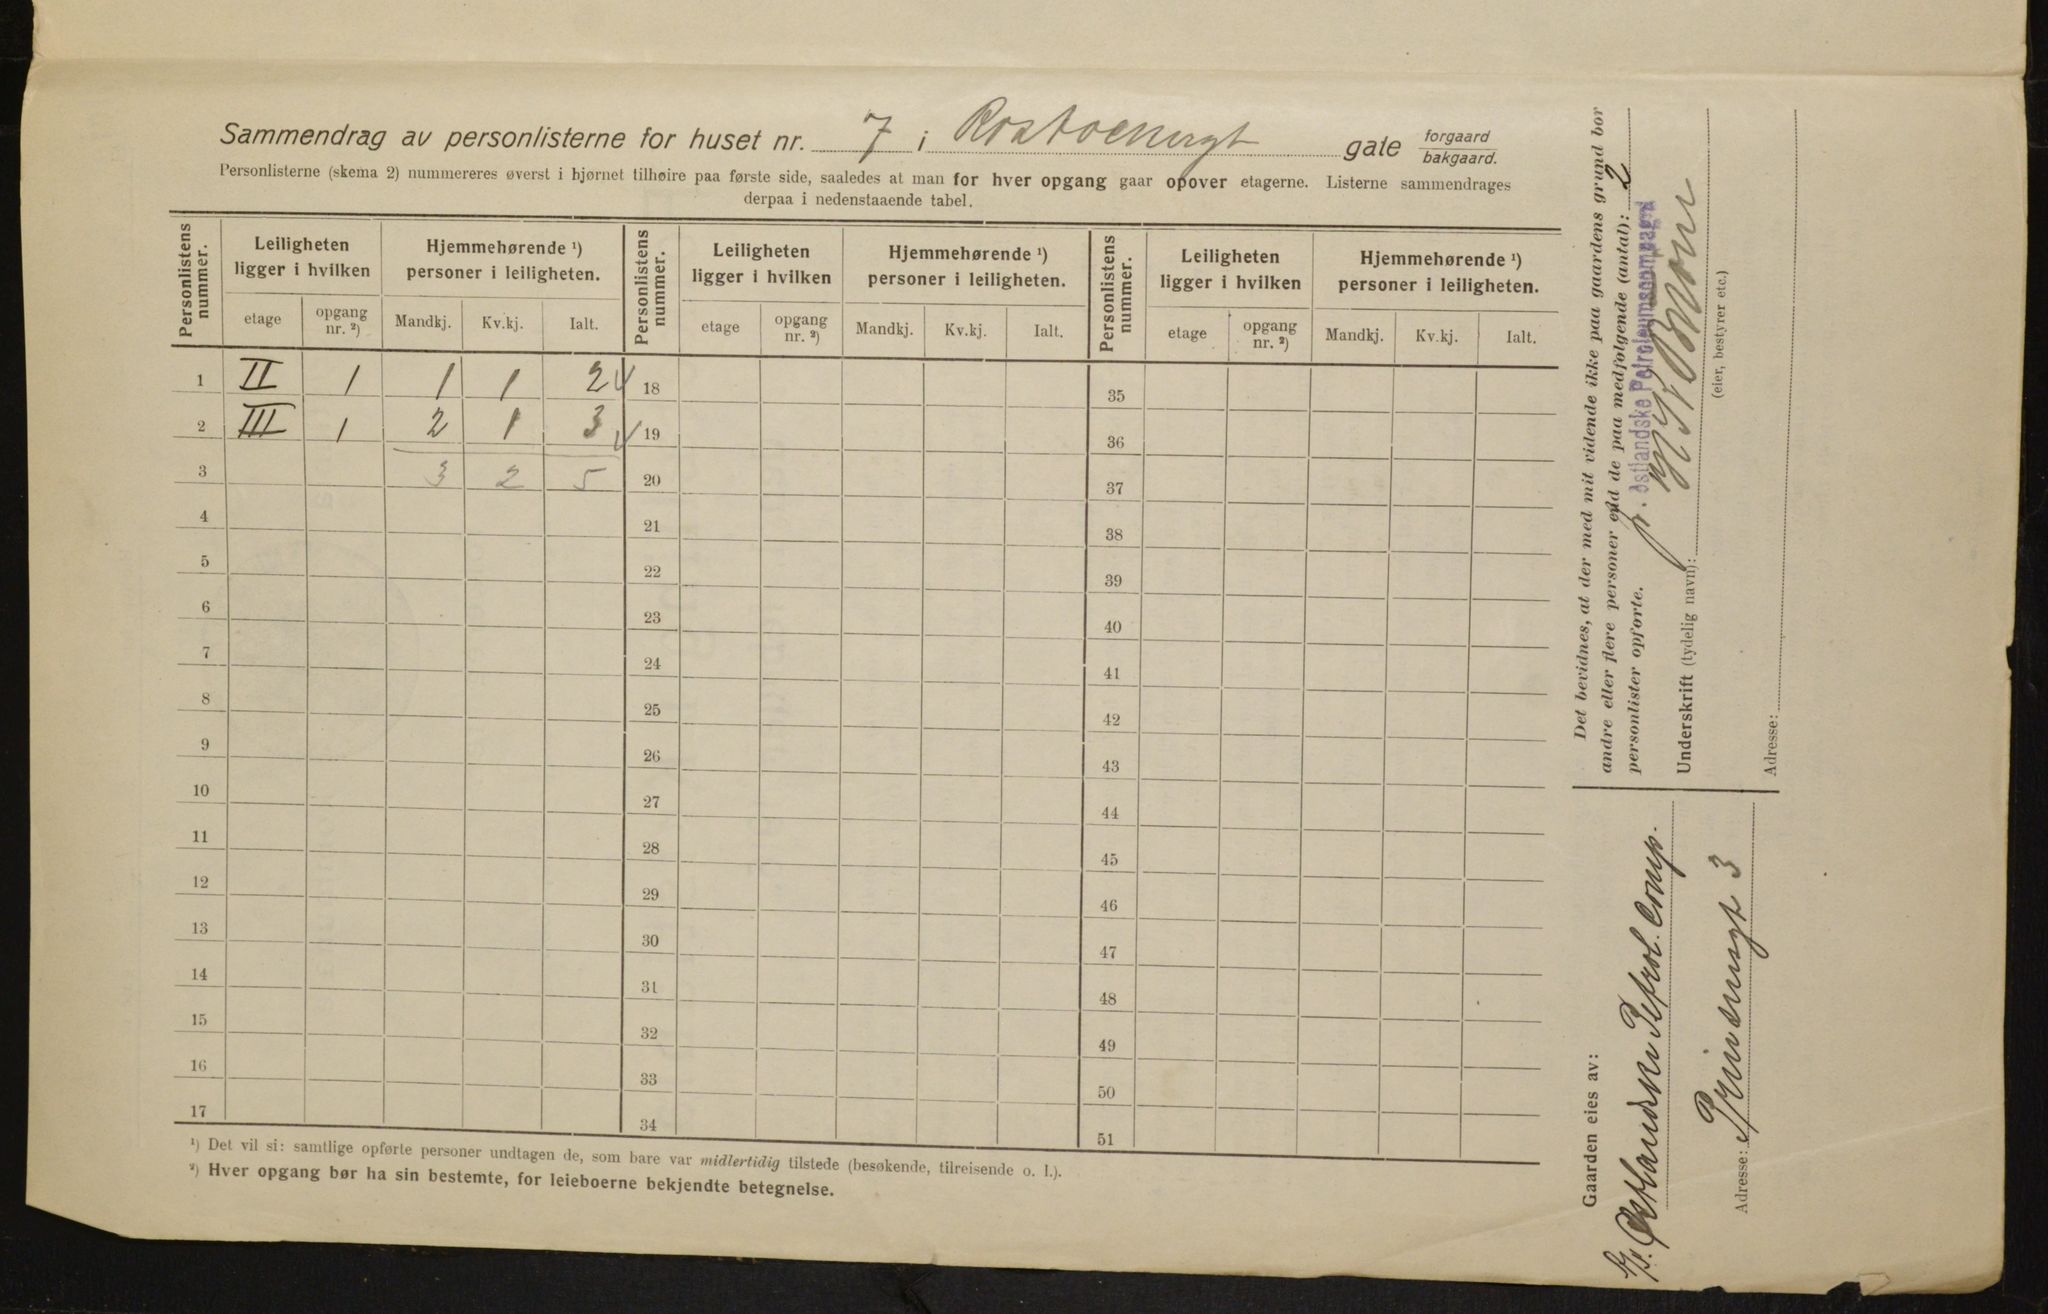 Sammendrag av personlisterne for huset nr. 7 i gate forgaard bakgaard.
Personlisterne (skema 2) nummereres øverst i hjørnet tilhøire paa første side, saaledes at man for hver opgang gaar opover etagerne. Listerne sammendrages
derpaa i nedenstaaende tabel.
Personlistens nummer. Leiligheten ligger i hvilken Hjemmehørende ¹) personer i leiligheten. Personlistens nummer. Leiligheten ligger i hvilken Hjemmehørende ¹) personer i leiligheten. Personlistens nummer. Leiligheten ligger i hvilken Hjemmehørende ¹) personer i leiligheten.
etage opgang nr. ²) Mandkj. Kv.kj. Ialt. etage opgang nr. ²) Mandkj. Kv.kj. Ialt. etage opgang nr. ²) Mandkj. Kv.kj. Ialt.
1 II 1 1 1 2 18 35
2 III 1 2 1 3 19 36
3 3 2 5 20 37
4 21 38
5 22 39
6 23 40
7 24 41
8 25 42
9 26 43
10 27 44
11 28 45
12 29 46
13 30 47
14 31 48
15 32 49
16 33 50
17 34 51
¹) Det vil si: samtlige opførte personer undtagen de, som bare var midlertidig tilstede (besøkende, tilreisende o. l.).
²) Hver opgang bør ha sin bestemte, for leieboerne bekjendte betegnelse.
Det bevidnes, at der med mit vidende ikke paa gaardens grund bor
andre eller flere personer end de paa medfølgende (antal): 2
personlister opførte.
p. Østlandske Petroleumscompagni
Underskrift (tydelig navn):
(eier, bestyrer etc.)
Adresse:
Gaarden eies av:
A/S. Østlandske Petrol. Comp.
Adresse: Prinsensgt 3